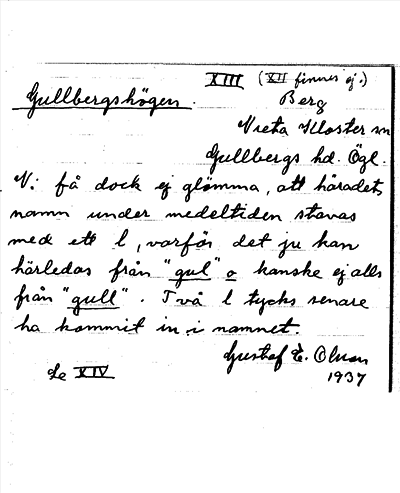 XIII (XII finnes ej.)
Gullbergshögen. Berg
Vreta Kloster sn
Gullbergs hd. Ögl.
Vi få dock ej glömma, att häradets
namn under medeltiden stavas
med ett l, varför det ju kan
härledas från "gul" o kanske ej alls
från "gull". Två l tycks senare
ha kommit in i namnet.
Gustaf E. Olsson
1937
Se XIV